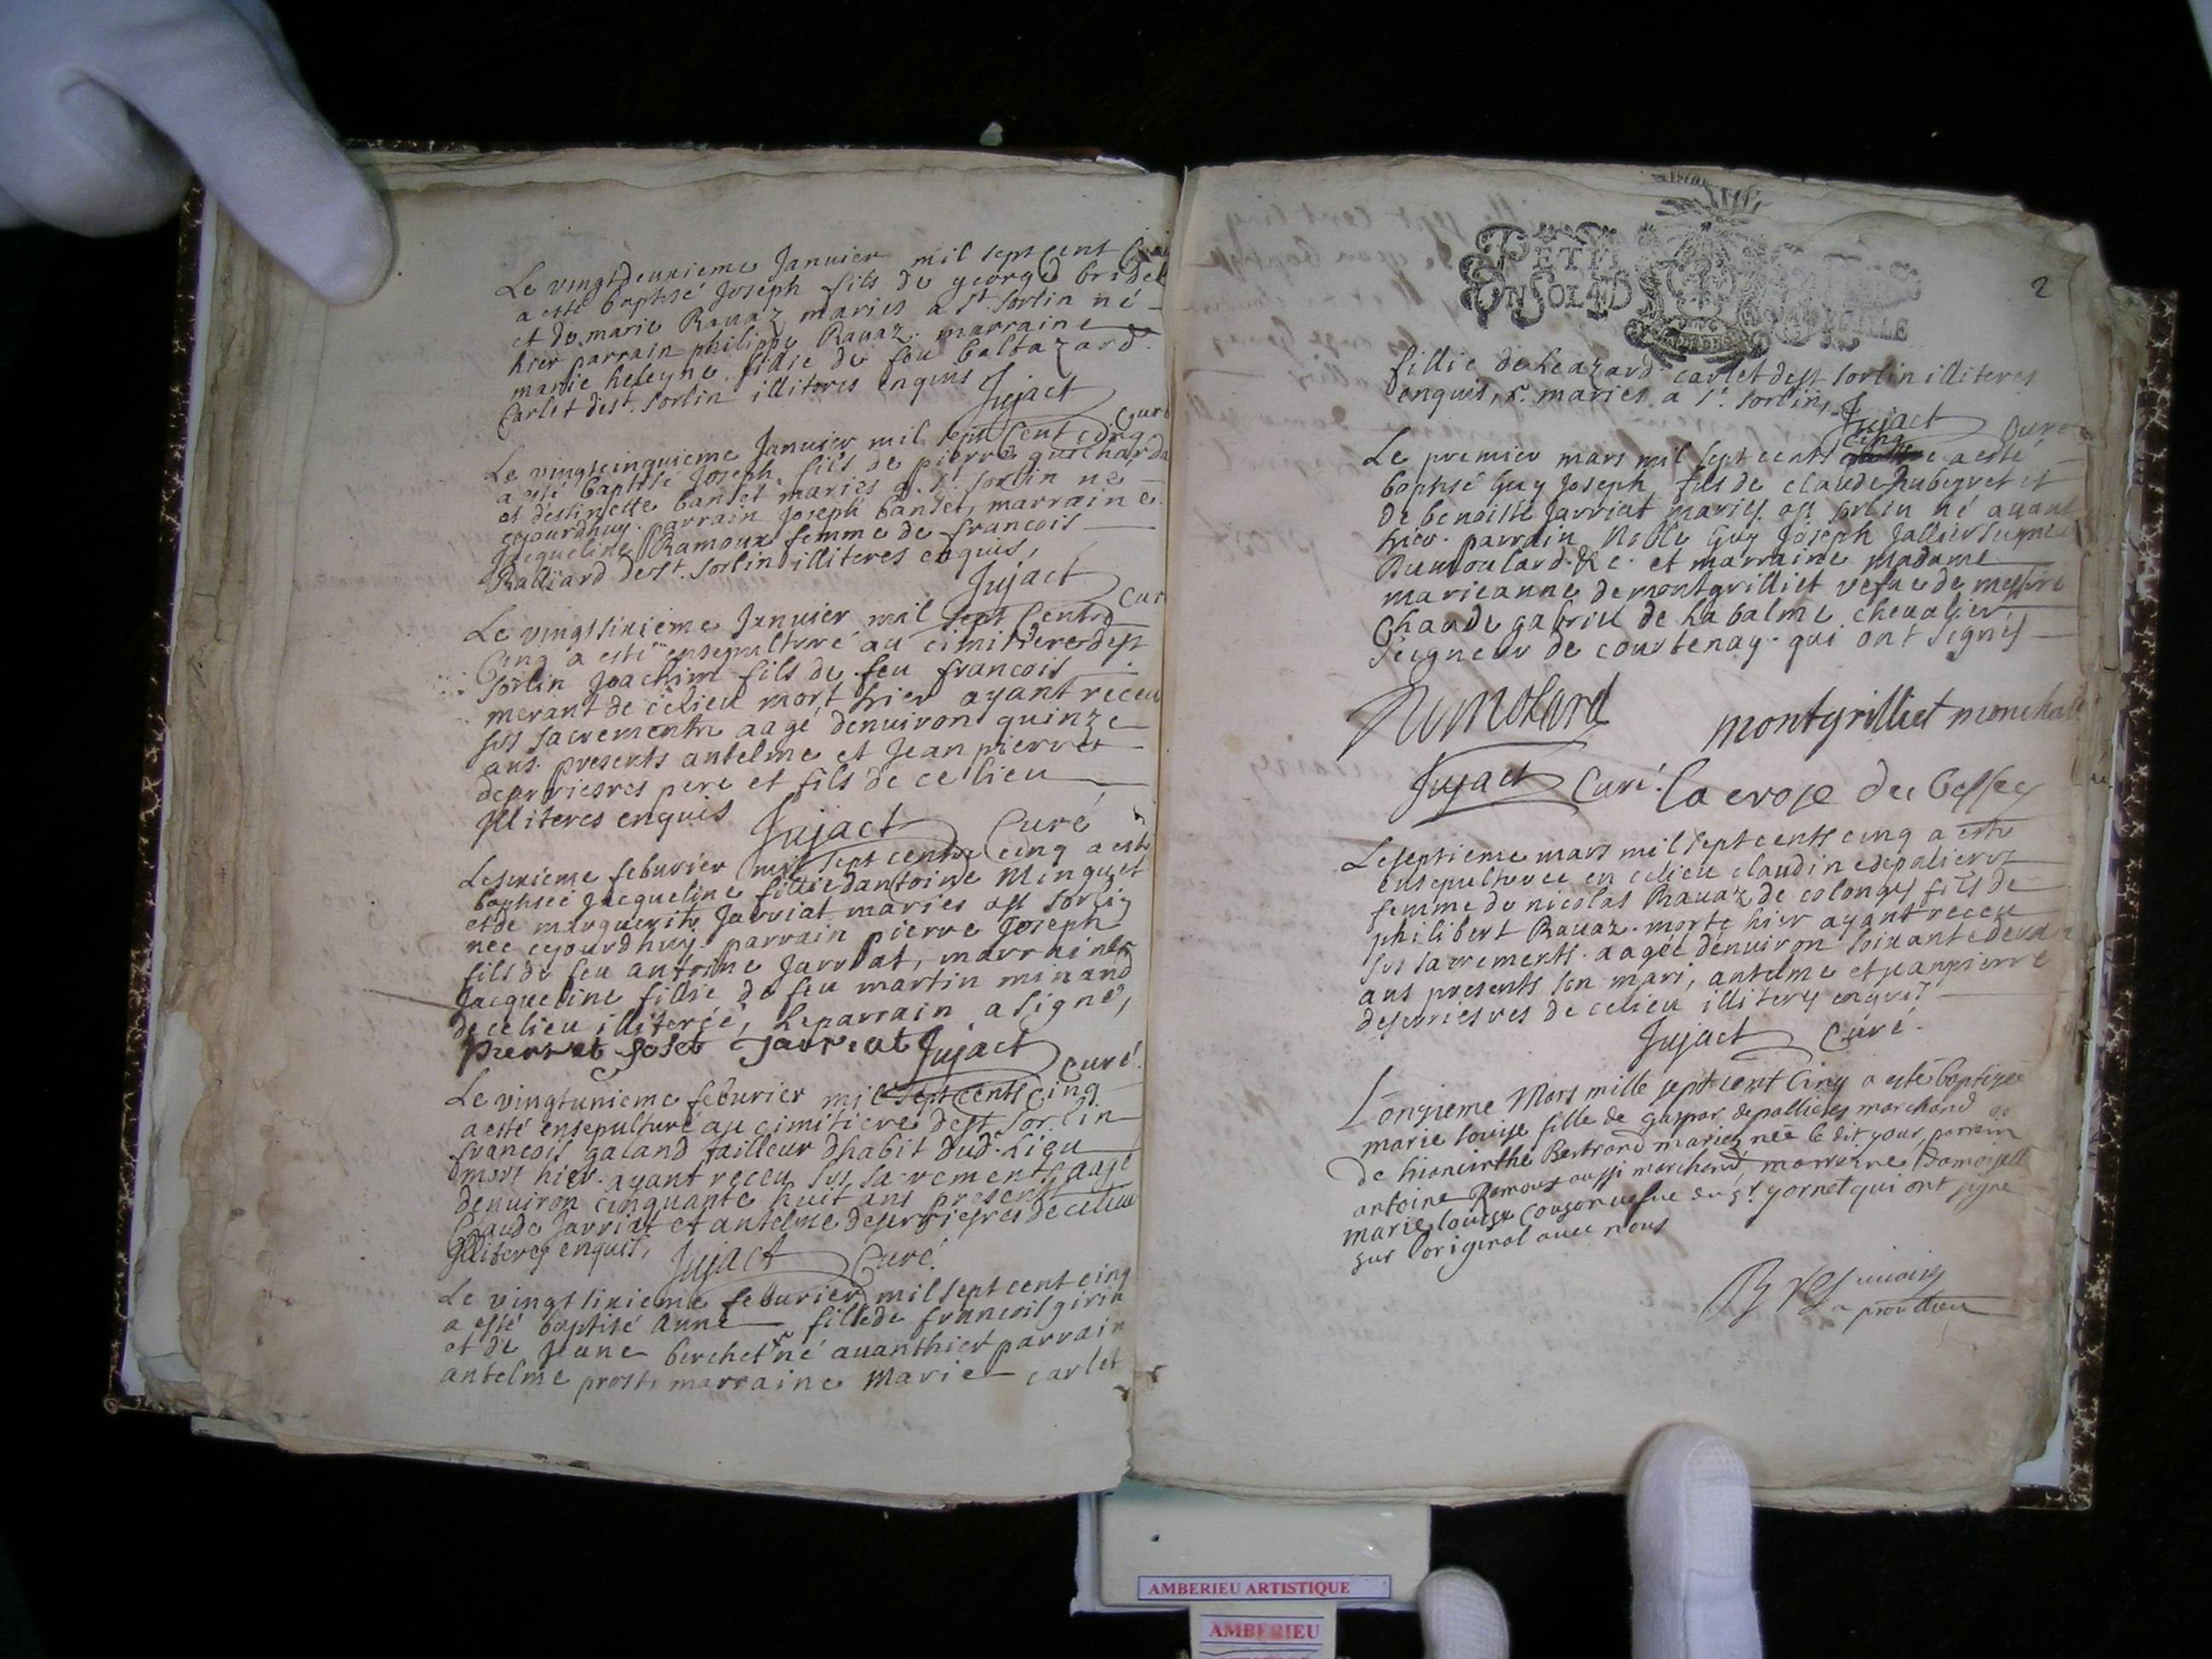 Le vingtdeuxieme Januier mil sept Cent
a esté baptisé Joseph fils de george bridel
et de marie Rauaz maries a st. sorlin né
hier parrain philippe Rauaz. marraine
marie heleyne fillie de feu baltazard
Carlet dest. sorlin illiteres enquis
Jujact
Curé
Le vingtcinquieme Januier mil sept Cent cinq
a esté baptisé Joseph fils de pierre guichard
et destinette bandet maries a st. sorlin né
cejourdhuy. parrain Joseph bandet, marraine
Jacqueline Ramoux femme de francois
Ralliard de st. sorlin illiteres enquis,
Jujact
Cur
Le vingtsixieme Januier mil sept Cents
Cinq a esté ensepulturé au cimitiere dest
sorlin Joachim fils de feu francois
merant de celieu mort hier ayant receu
sps sacrements aagé denuiron quinze
ans. presents antelme et Jean pierre
deserriesres pere et fils de ce lieu
Illiteres enquis
Jujact Curé
Lesixieme feburier mil sept cents cinq a esté
baptiseé Jacqueline fillie dantoine Minguet
et de marguerite Jarriat maries a st sorlin
née cejourdhuy. parrain pierre Joseph
fils de feu antoine Jarriat, marraine
Jacqueline fillie de feu martin minand
de celieu illiterée, Leparrain a signé,
pierre Joset Jarreat Jujact
Curé.
Le vingtunieme feburier mil sept cents cinq
a esté ensepulturé au cimitiere dest sorlin
francois galand tailleur dhabit dud. Lieu
mort hier. ayant receu sps sacrements aagé
denuiron cinquante huit ans presents
Claude Jarriat et antelme deserriesres de celieu
Illiteres enquis,
Jujact Curé.
Le vingt sixieme feburier mil sept cent cinq
a esté baptisé anne fille de francois girin
et de Jeane berchet né auanthier parrain
antelme prost, marraine Marie carlet
2
PETIT
EN
fillie de Leazard carlet dest sorlin illiteres
enquis, maries a st. sorlin,
Jujact Curé
cinq
Le premier mars mil sept cents a esté
baptisé Guy Joseph fils de claude hubeyret et
de benoiste Jarriat maries a st sorlin né auant
hier. parrain Noble Guy Joseph Jallier seigneur
Dumoulard. &c. et marraine Madame
marieanne de montgrilliet vefue de messire
Charle gabriel de La balme cheualier
seigneur de courtenay. qui ont signés
Dumolard
montgrilliet
Jujact Curé. la crose du bessey
Leseptieme mars mil sept cents cinq a esté
ensepulturee en celieu claudine depalieres
femme de nicolas Rauaz de colonges fils de
philibert Rauaz. morte hier ayant receu
sps sacrements. aagée denuiron soixante
ans presents son mari, antelme et jeanpierre
deserriesres de celieu illiteres enquis
Jujact Curé.
L'onzieme Mars mille sept cent Cinq a esté baptizée
marie louise fille de gaspar depallieres marchand et
de hiacinthe Bertrand mariez née le dit jour, parrain
antoine Ramoux aussi marchand, marrenne Damoiselle
marie louise cougon uefue du sr. gornet qui ont signé
sur l'original auec nous